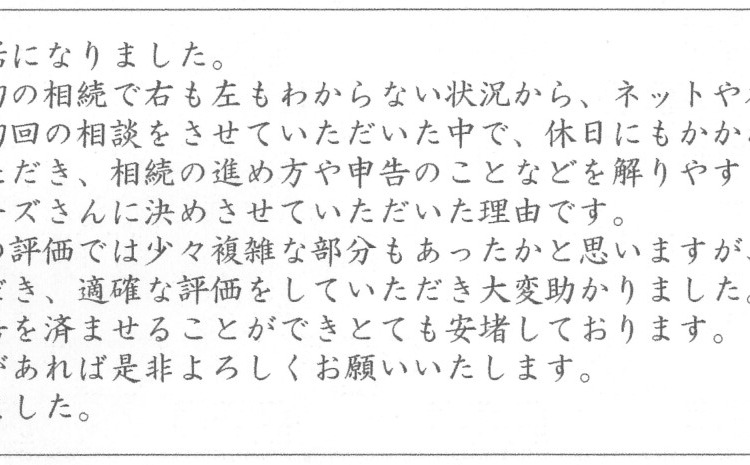 話になりました。
の相続で右も左もわからない状況から、ネットや
回の相談をさせていただいた中で、休日にもかか
ただき、相続の進め方や申告のことなどを解りやす
ーズさんに決めさせていただいた理由です。
の評価では少々複雑な部分もあったかと思いますが、
だき、適確な評価をしていただき大変助かりました。
を済ませることができとても安堵しております。
があれば是非よろしくお願いいたします。
ました。